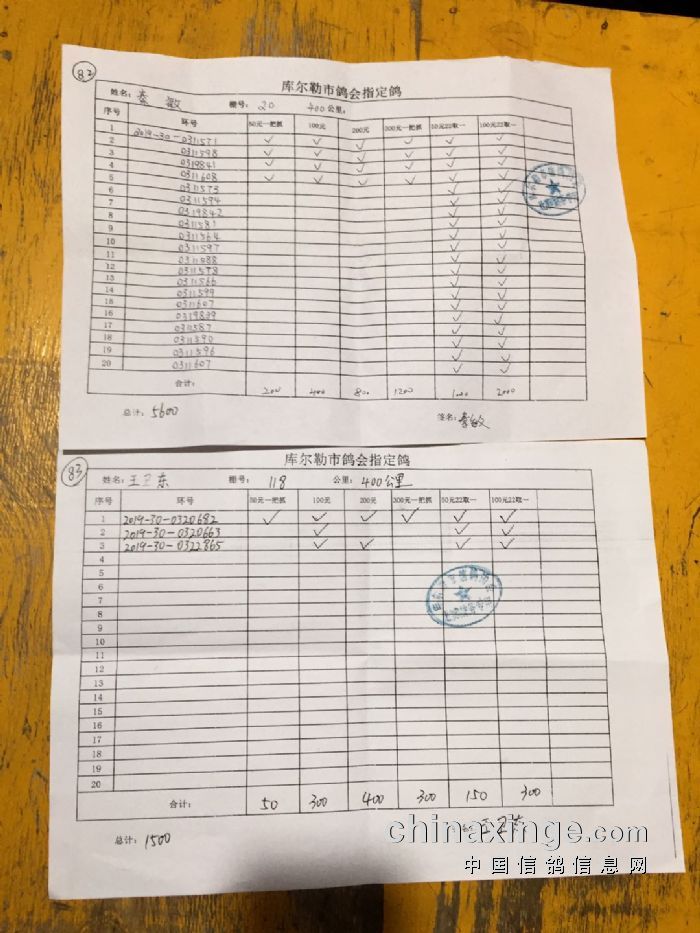 82
库尔勒市鸽会指定鸽
姓名: 秦敏 棚号: 20 400公里:
序号 环号 50元一把抓 100元 200元 300元一把抓 50元22取一 100元22取一
1 2019-30-0311571 ✓ ✓ ✓ ✓ ✓ ✓
2 0311598 ✓ ✓ ✓ ✓ ✓ ✓
3 0319841 ✓ ✓ ✓ ✓ ✓ ✓
4 0311608 ✓ ✓ ✓ ✓ ✓ ✓
5 0311573 ✓ ✓
6 0311594 ✓ ✓
7 0319842 ✓ ✓
8 0311581 ✓ ✓
9 0311564 ✓ ✓
10 0311597 ✓ ✓
11 0311588 ✓ ✓
12 0311578 ✓ ✓
13 0311566 ✓ ✓
14 0311599 ✓ ✓
15 0311607 ✓ ✓
16 0319839 ✓ ✓
17 0311587 ✓ ✓
18 0311590 ✓ ✓
19 0311596 ✓ ✓
20 0311607 ✓ ✓
合计: 200 400 800 1200 1000 2000
总计: 5600 签名: 秦敏
83
库尔勒市鸽会指定鸽
姓名: 王卫东 棚号: 118 公里: 400公里
序号 环号 50元一把抓 100元 200元 300元一把抓 50元22取一 100元22取一
1 2019-30-0320682 ✓ ✓ ✓ ✓ ✓ ✓
2 2019-30-0320663 ✓ ✓ ✓
3 2019-30-0322865 ✓ ✓ ✓ ✓
4
5
6
7
8
9
10
11
12
13
14
15
16
17
18
19
20
合计: 50 300 400 300 150 300
总计: 1500 王卫东
chinaxinge.com
中国信鸽信息网